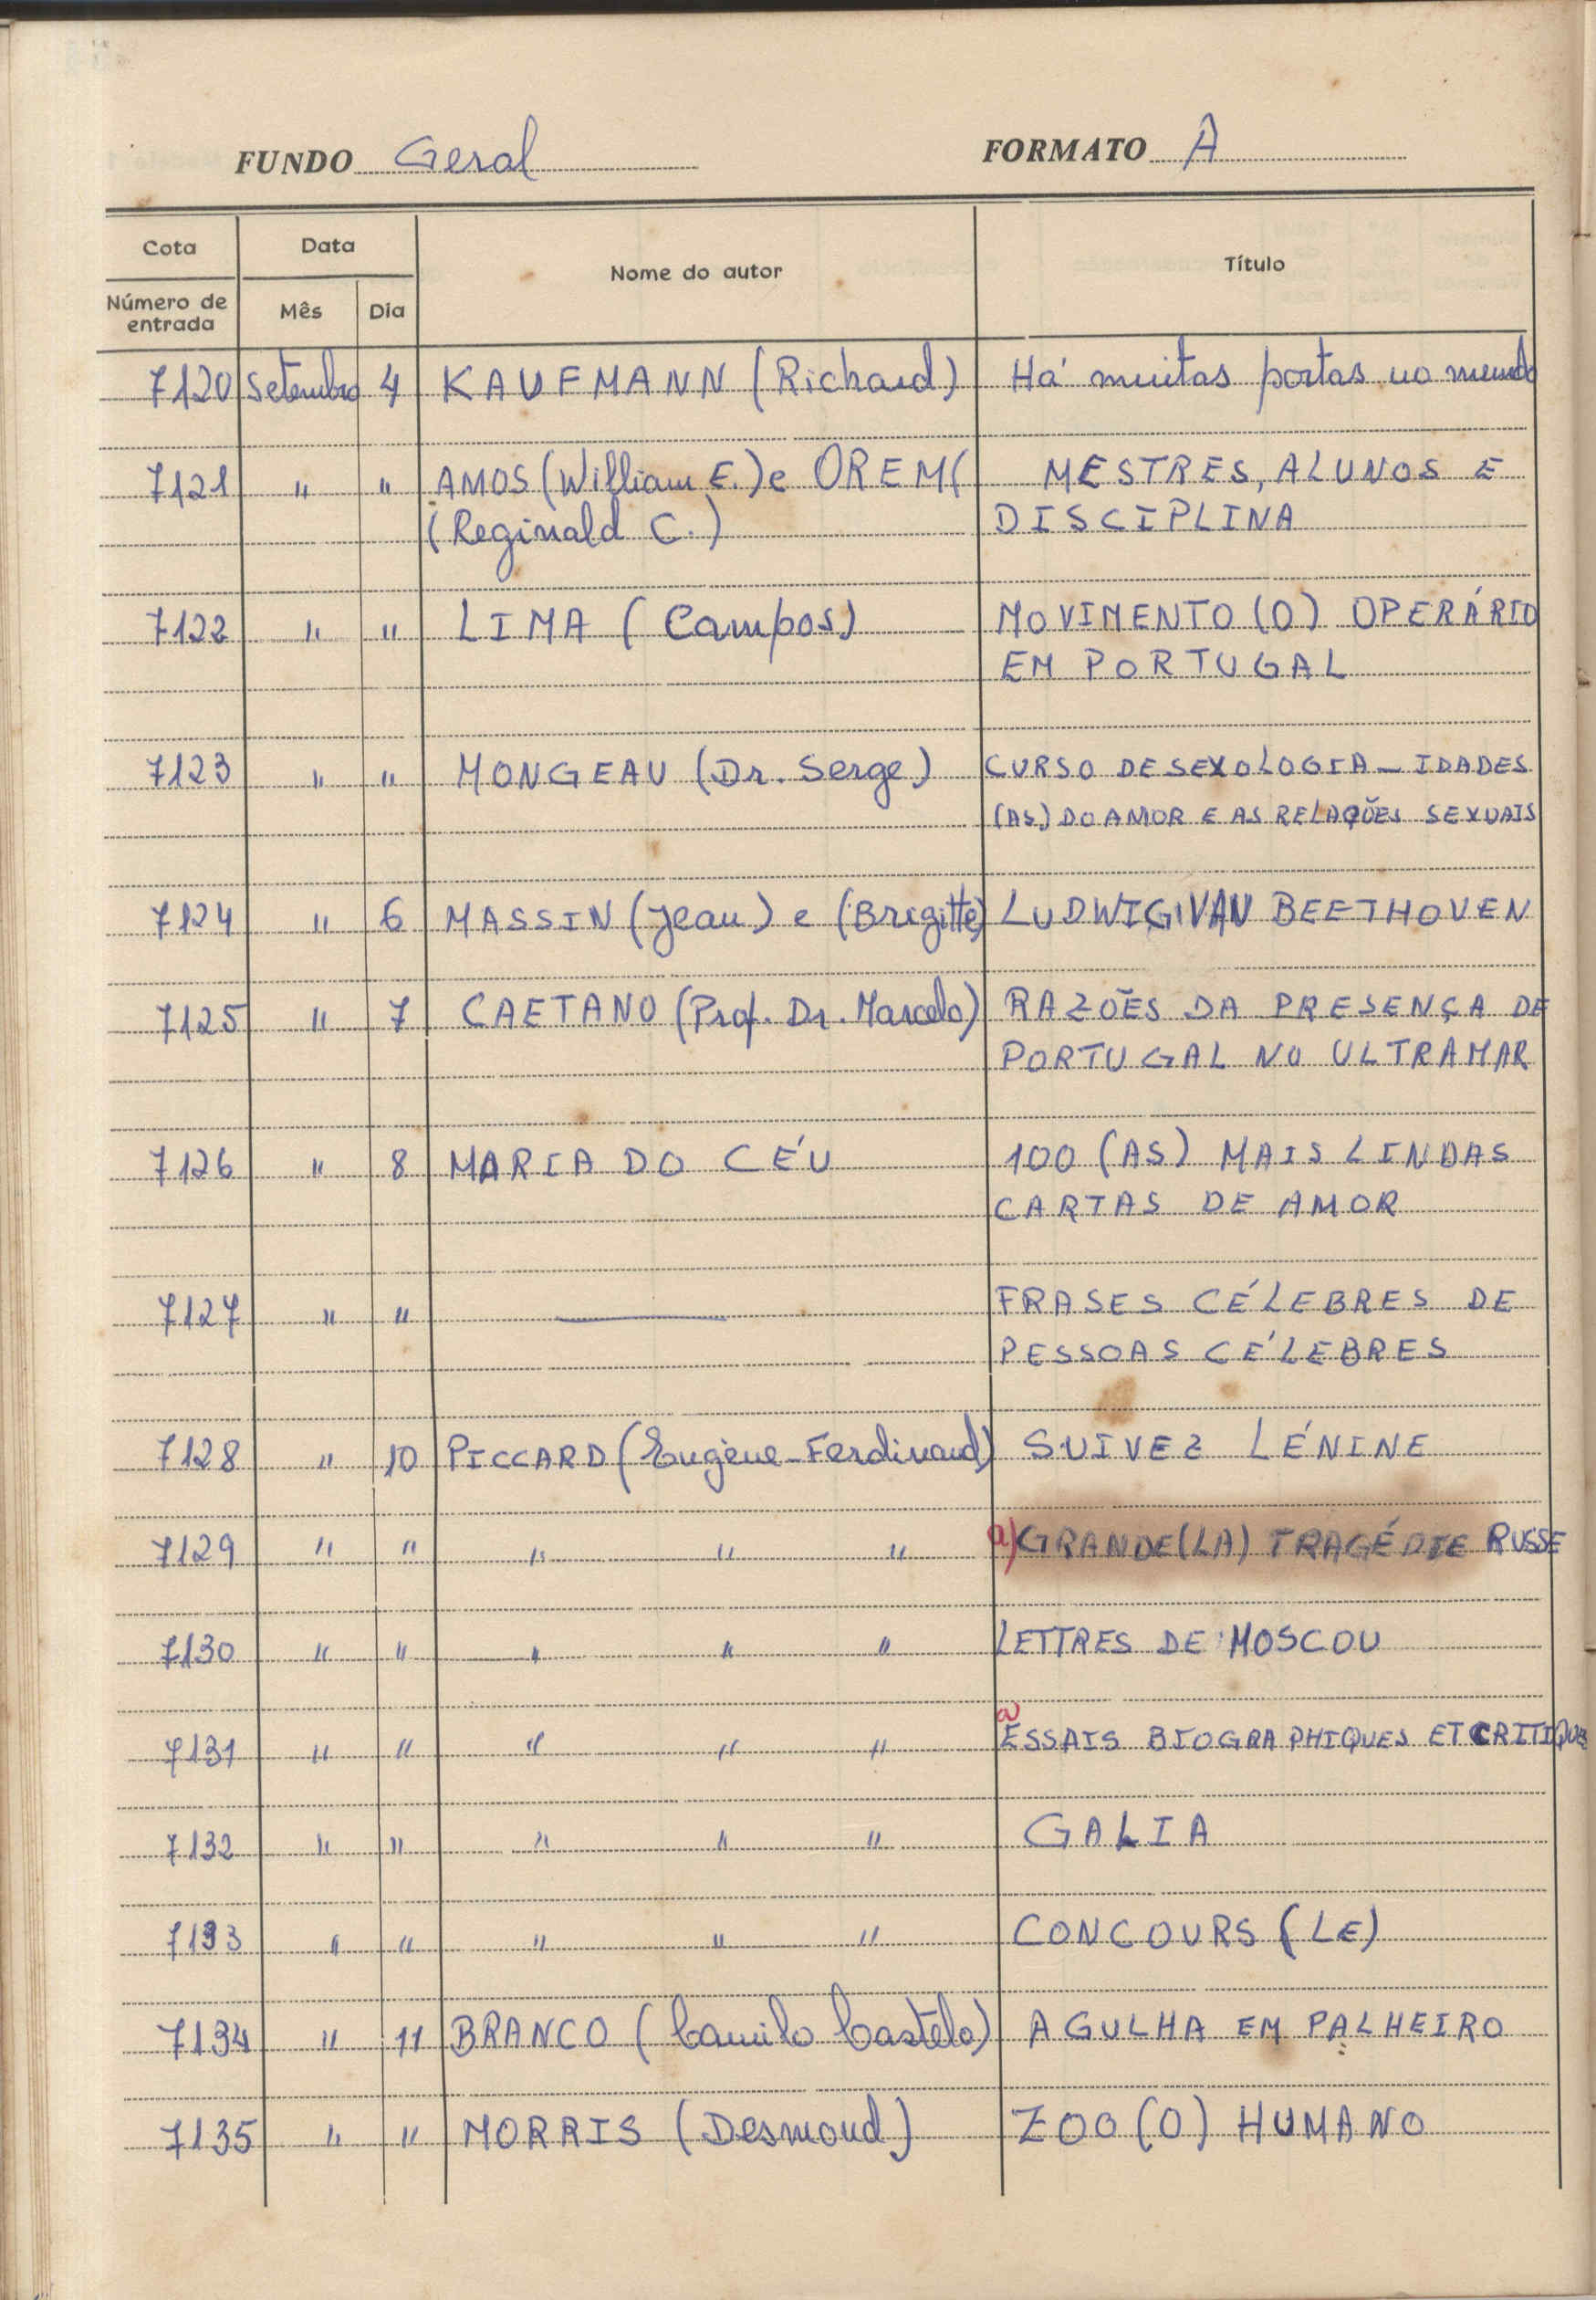 FUNDO Geral FORMATO A
Cota Data Nome do autor Título
Número de entrada Mês Dia
7120 Setembro 4 KAUFMANN (Richard) Há muitas portas no mundo
7121 " " AMOS (William E.) e OREM( MESTRES, ALUNOS E
(Reginald C.) DISCIPLINA
7122 " " LIMA (Campos) MOVIMENTO (O) OPERÁRIO
EM PORTUGAL
7123 " " MONGEAU (Dr. Serge) CURSO DE SEXOLOGIA – IDADES
(AS) DO AMOR E AS RELAÇÕES SEXUAIS
7124 " 6 MASSIN (Jean) e (Brigitte) LUDWIG VAN BEETHOVEN
7125 " 7 CAETANO (Prof. Dr. Marcelo) RAZÕES DA PRESENÇA DE
PORTUGAL NO ULTRAMAR
7126 " 8 MARIA DO CÉU 100 (AS) MAIS LINDAS
CARTAS DE AMOR
7127 " " — FRASES CÉLEBRES DE
PESSOAS CÉLEBRES
7128 " 10 PICCARD (Eugène-Ferdinand) SUIVEZ LÉNINE
7129 " " " " " a) GRANDE (LA) TRAGÉDIE RUSSE
7130 " " " " " LETTRES DE MOSCOU
a)
7131 " " " " " ESSAIS BIOGRAPHIQUES ET CRITIQUES
7132 " " " " " GALIA
7133 " " " " " CONCOURS (LE)
7134 " 11 BRANCO (Camilo Castelo) AGULHA EM PALHEIRO
7135 " " MORRIS (Desmond) ZOO (O) HUMANO